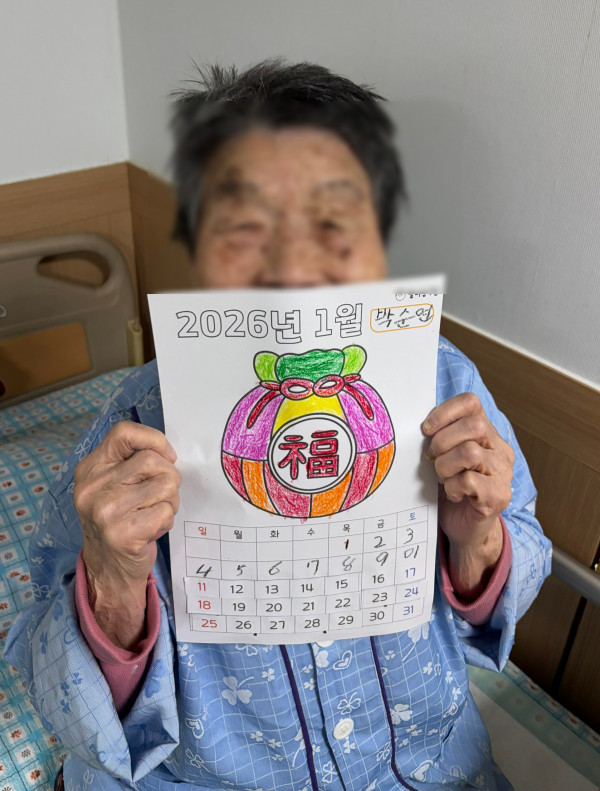 2026년 1월 박순연
福
일 월 화 수 목 금 토
1 2 3
4 5 6 7 8 9 01
11 12 13 14 15 16 17
18 19 20 21 22 23 24
25 26 27 28 29 30 31